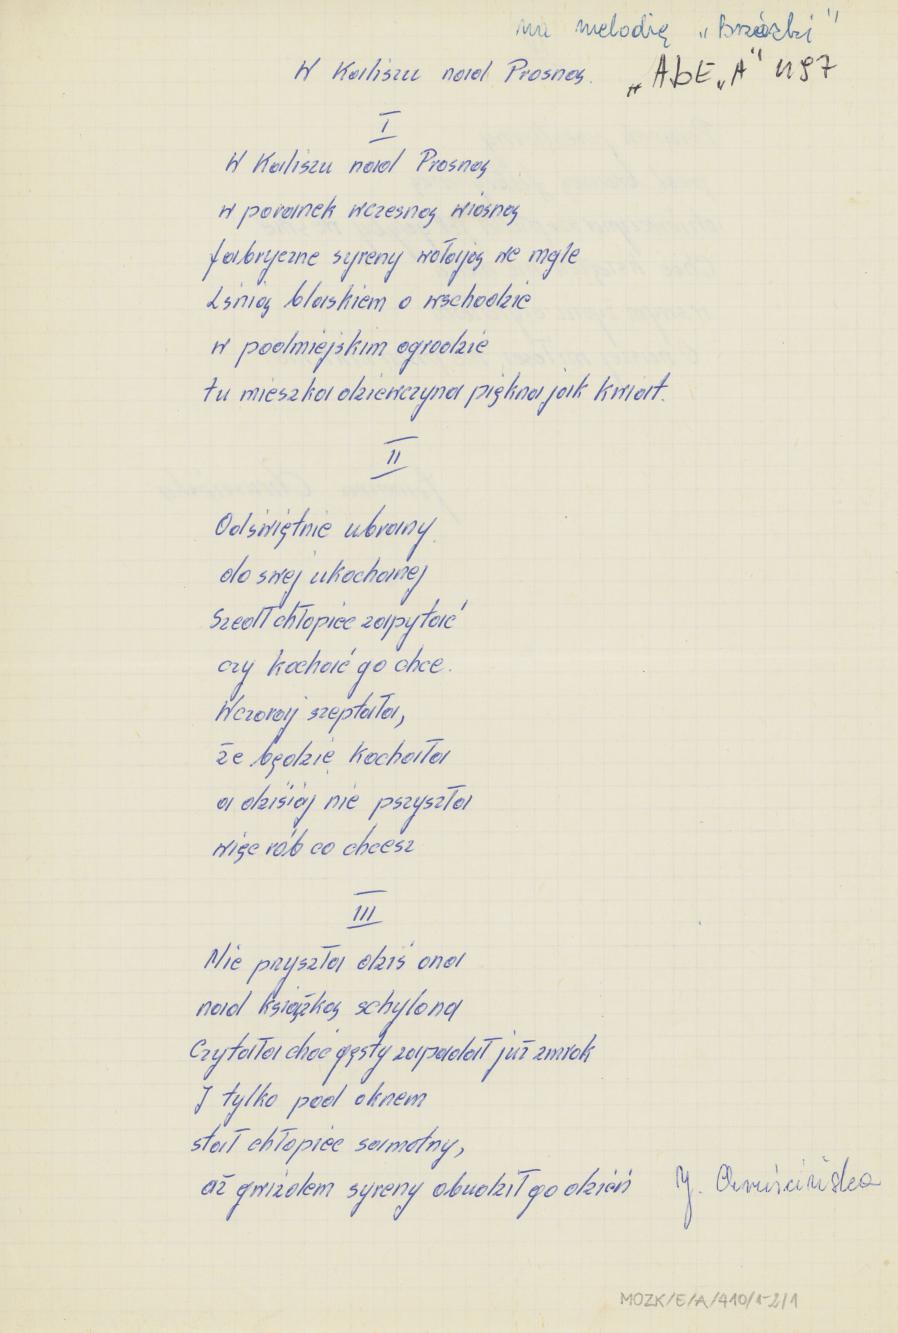 na melodię „Brzózki"
W Kaliszu nad Prosną.
„AbE„A" 1197
I
W Kaliszu nad Prosną
w poranek wczesną wiosną
fabryczne syreny wołają we mgle
Lśnią blaskiem o wschodzie
w podmiejskim ogrodzie
tu mieszka dziewczyna piękna jak kwiat.
II
Odświętnie ubrany
do swej ukochanej
Szedł chłopiec zapytać
czy kochać go chce.
Wczoraj szeptała,
że będzie kochała
a dzisiaj nie pszyszła
więc rób co chcesz
III
Nie pryszła dziś ona
nad książką schylona
Czytała choć gęsty zapadał już zmrok
I tylko pod oknem
stał chłopiec samotny,
aż gwizdem syreny obudził go dzień
J.
MOZK/E/A/410/1-2/1